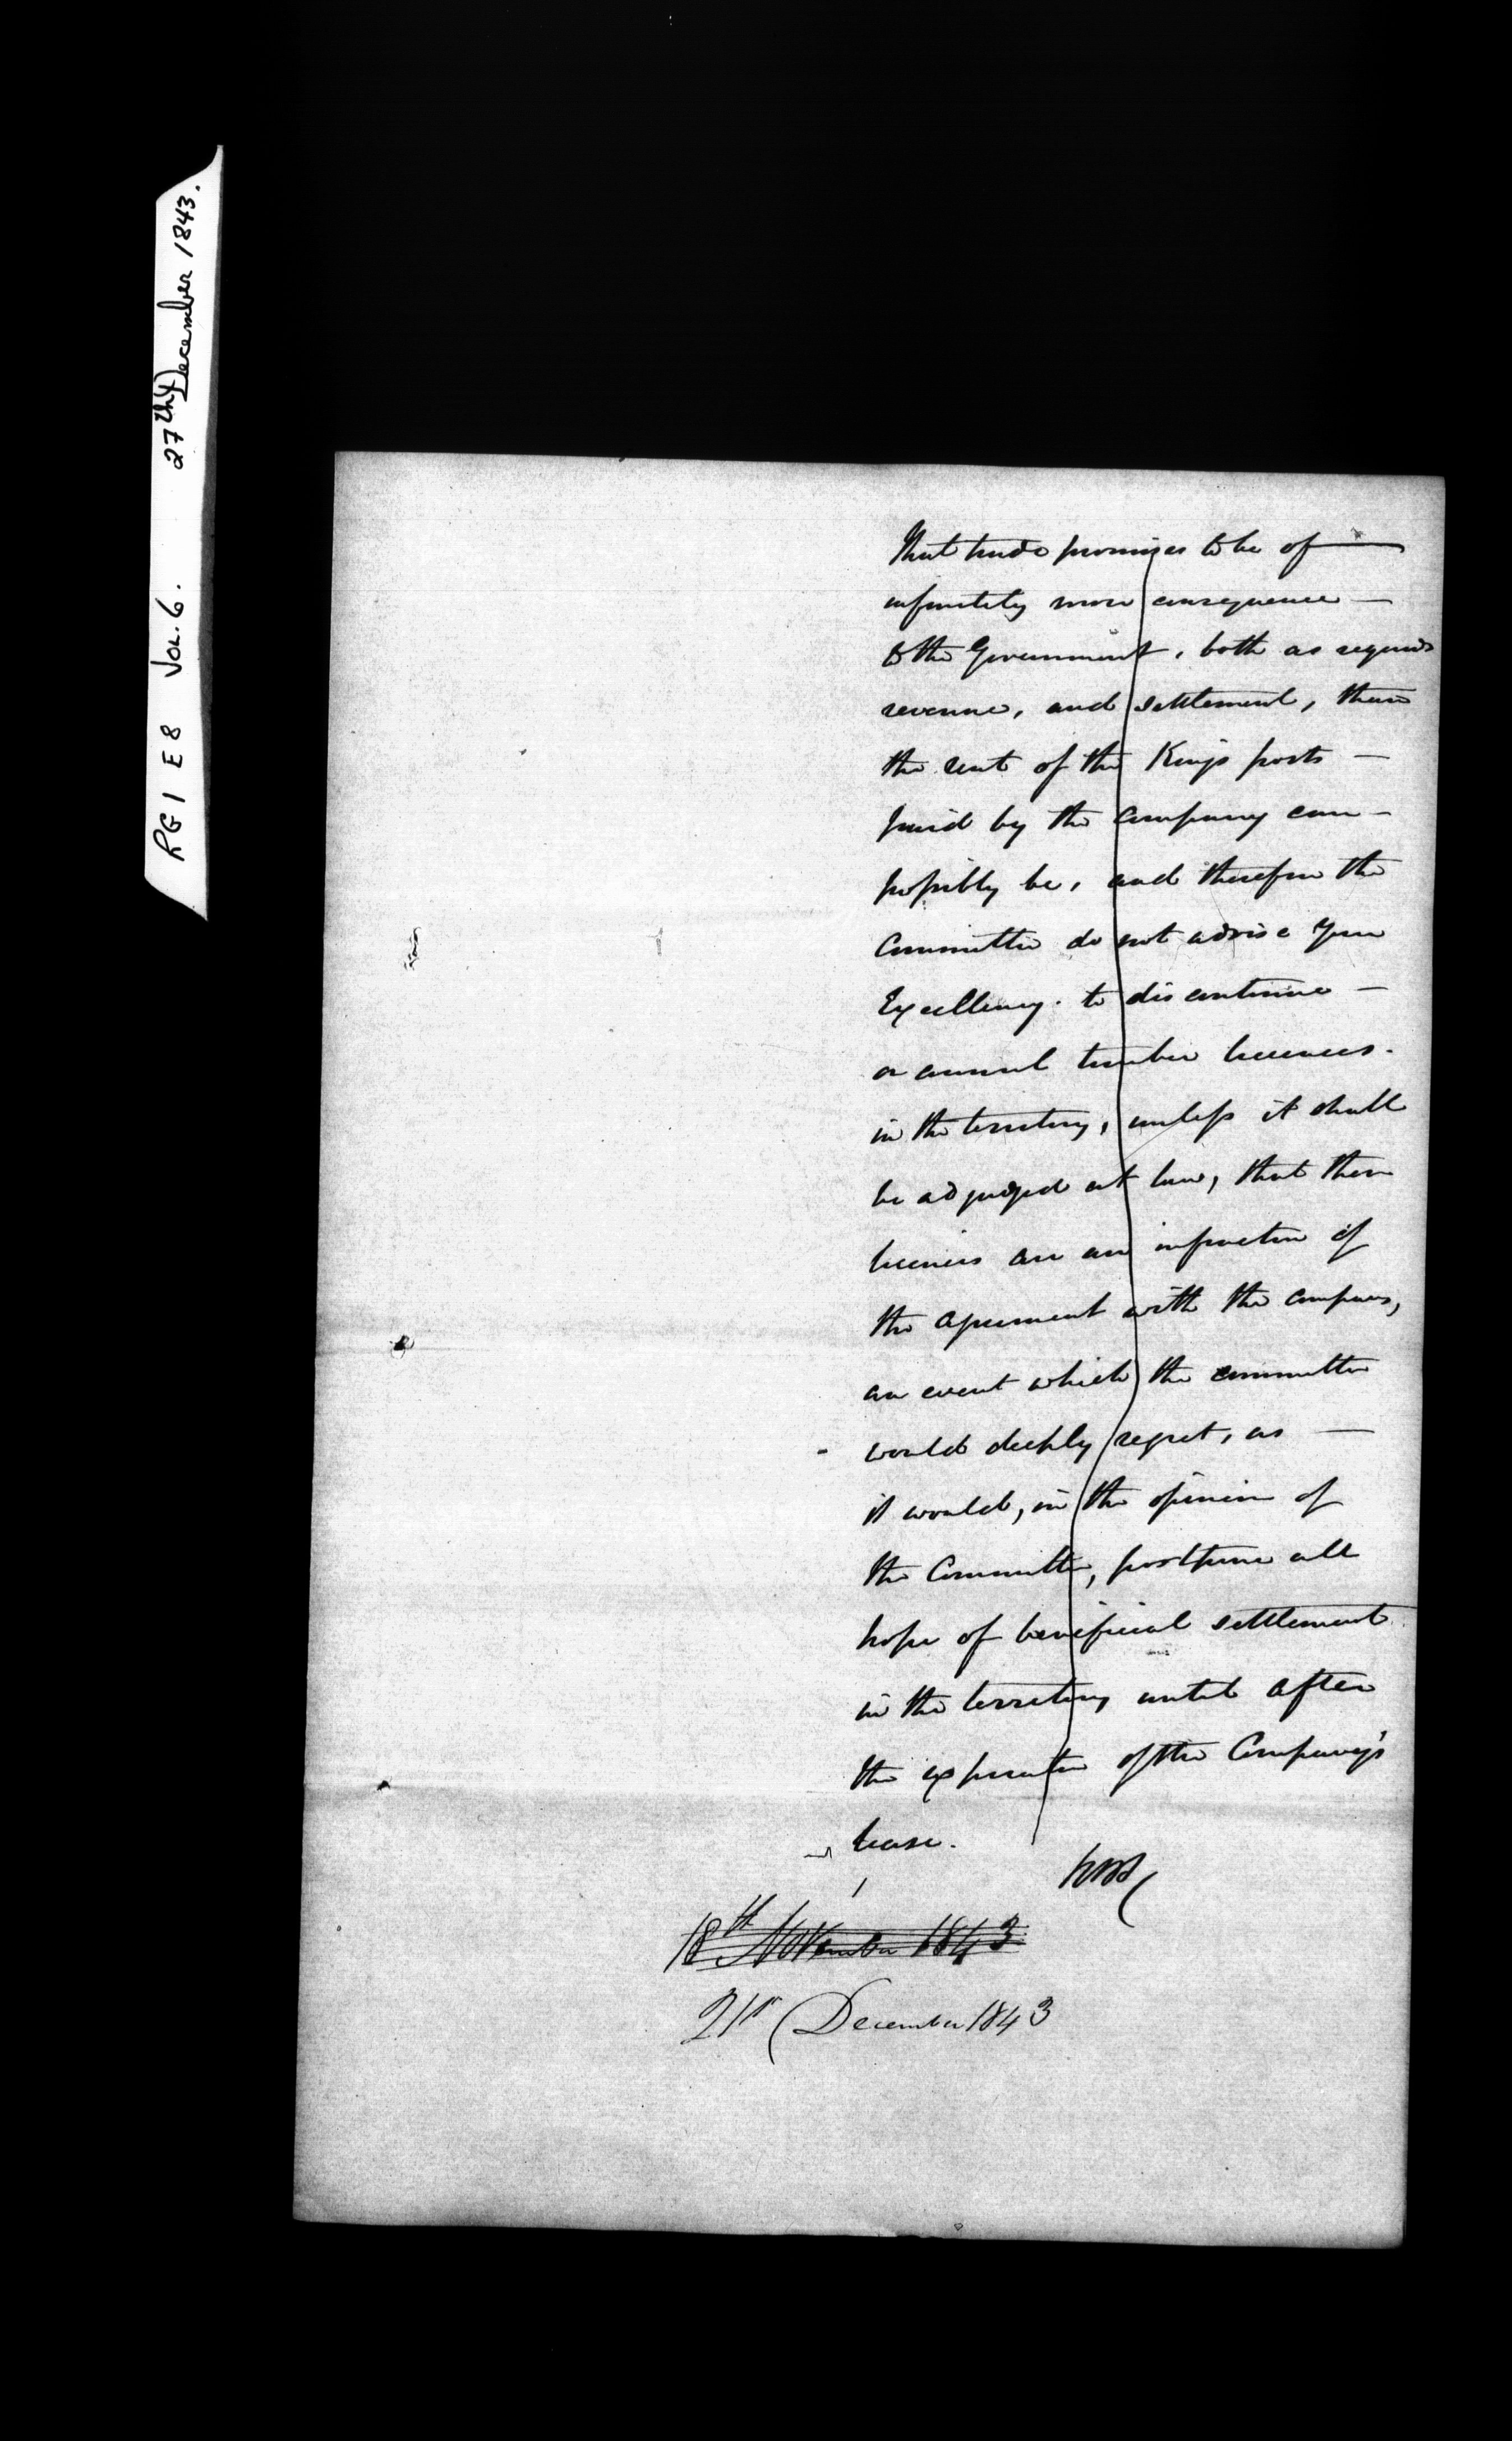 RG1 E8 Vol. 6. 27th December 1843.
that trade promises to be of —
infinitely more consequence —
to the Government, both as regards
revenue, and settlement, than
the rent of the Kings posts —
paid by the Company can —
possibly be, and therefore the
Committee do not advise Your
Excellency to discontinue —
annual timber licences.
in the territory, unless it shall
be adjudged at law, that these
licences are an infraction of
the agreement with the company,
an event which the committee
would deeply regret, as —
it would, in the opinion of
the Committee, postpone all
hope of beneficial settlement
in the territory until after
the expiration of the Company's
lease.
18th November 1843
21st December 1843